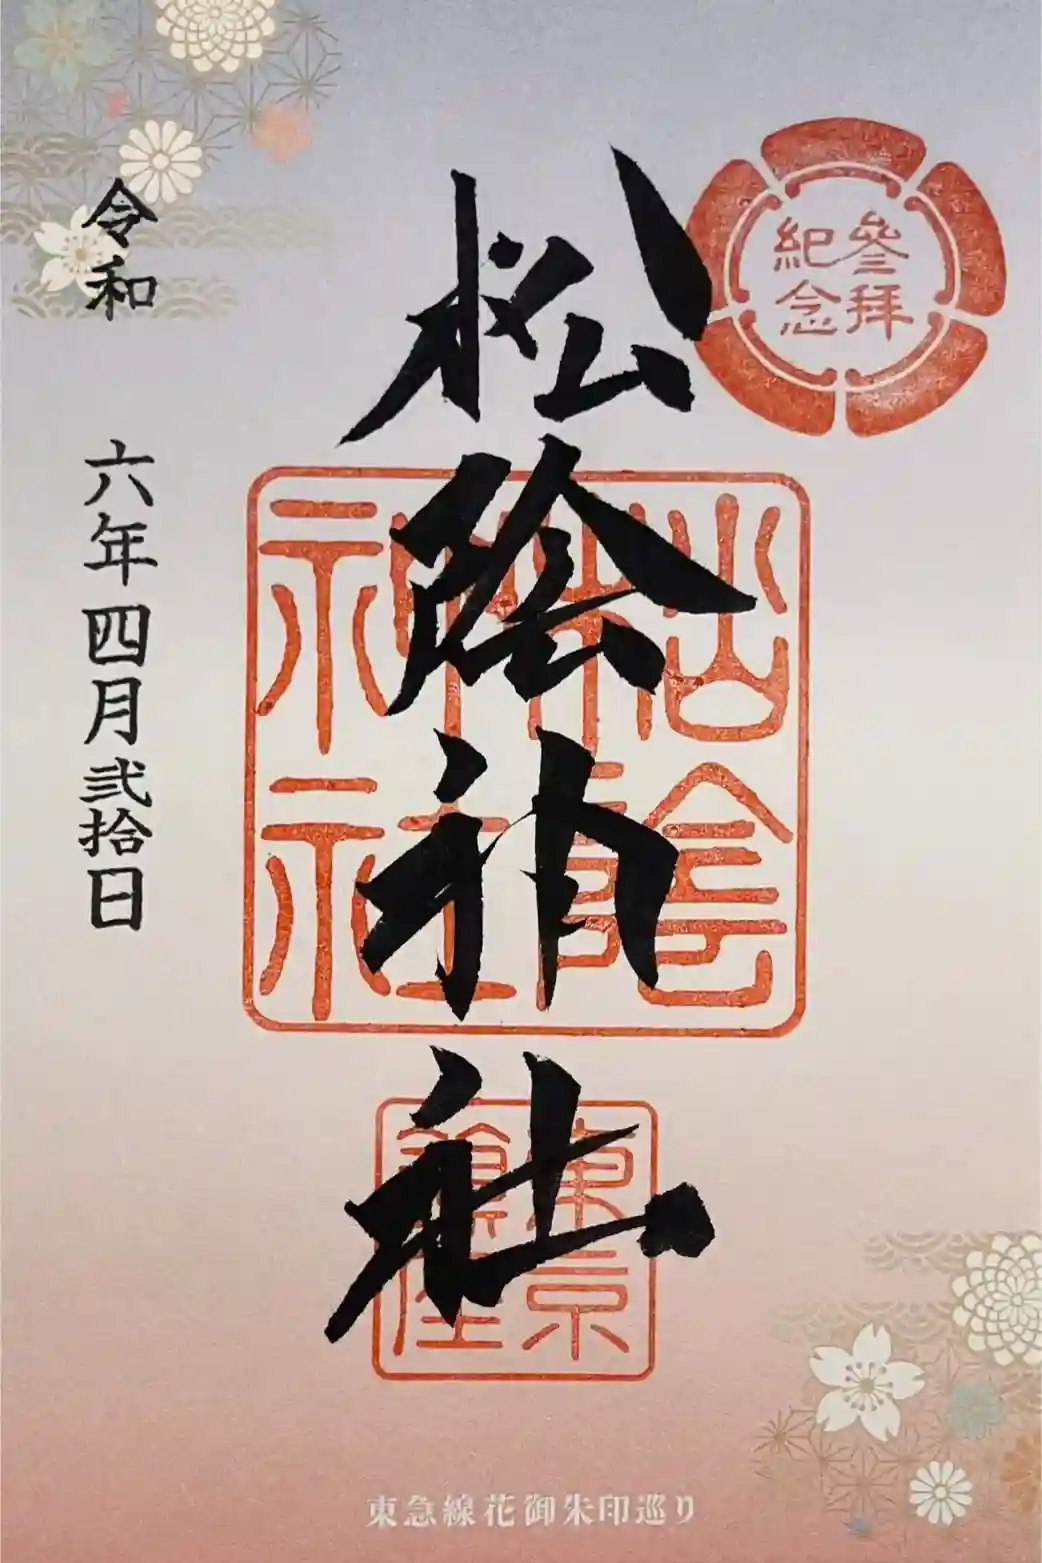 参拜
紀念
松陰神社
松陰
神社
東京
令和
六年四月弐拾日
東急線花御朱印巡り